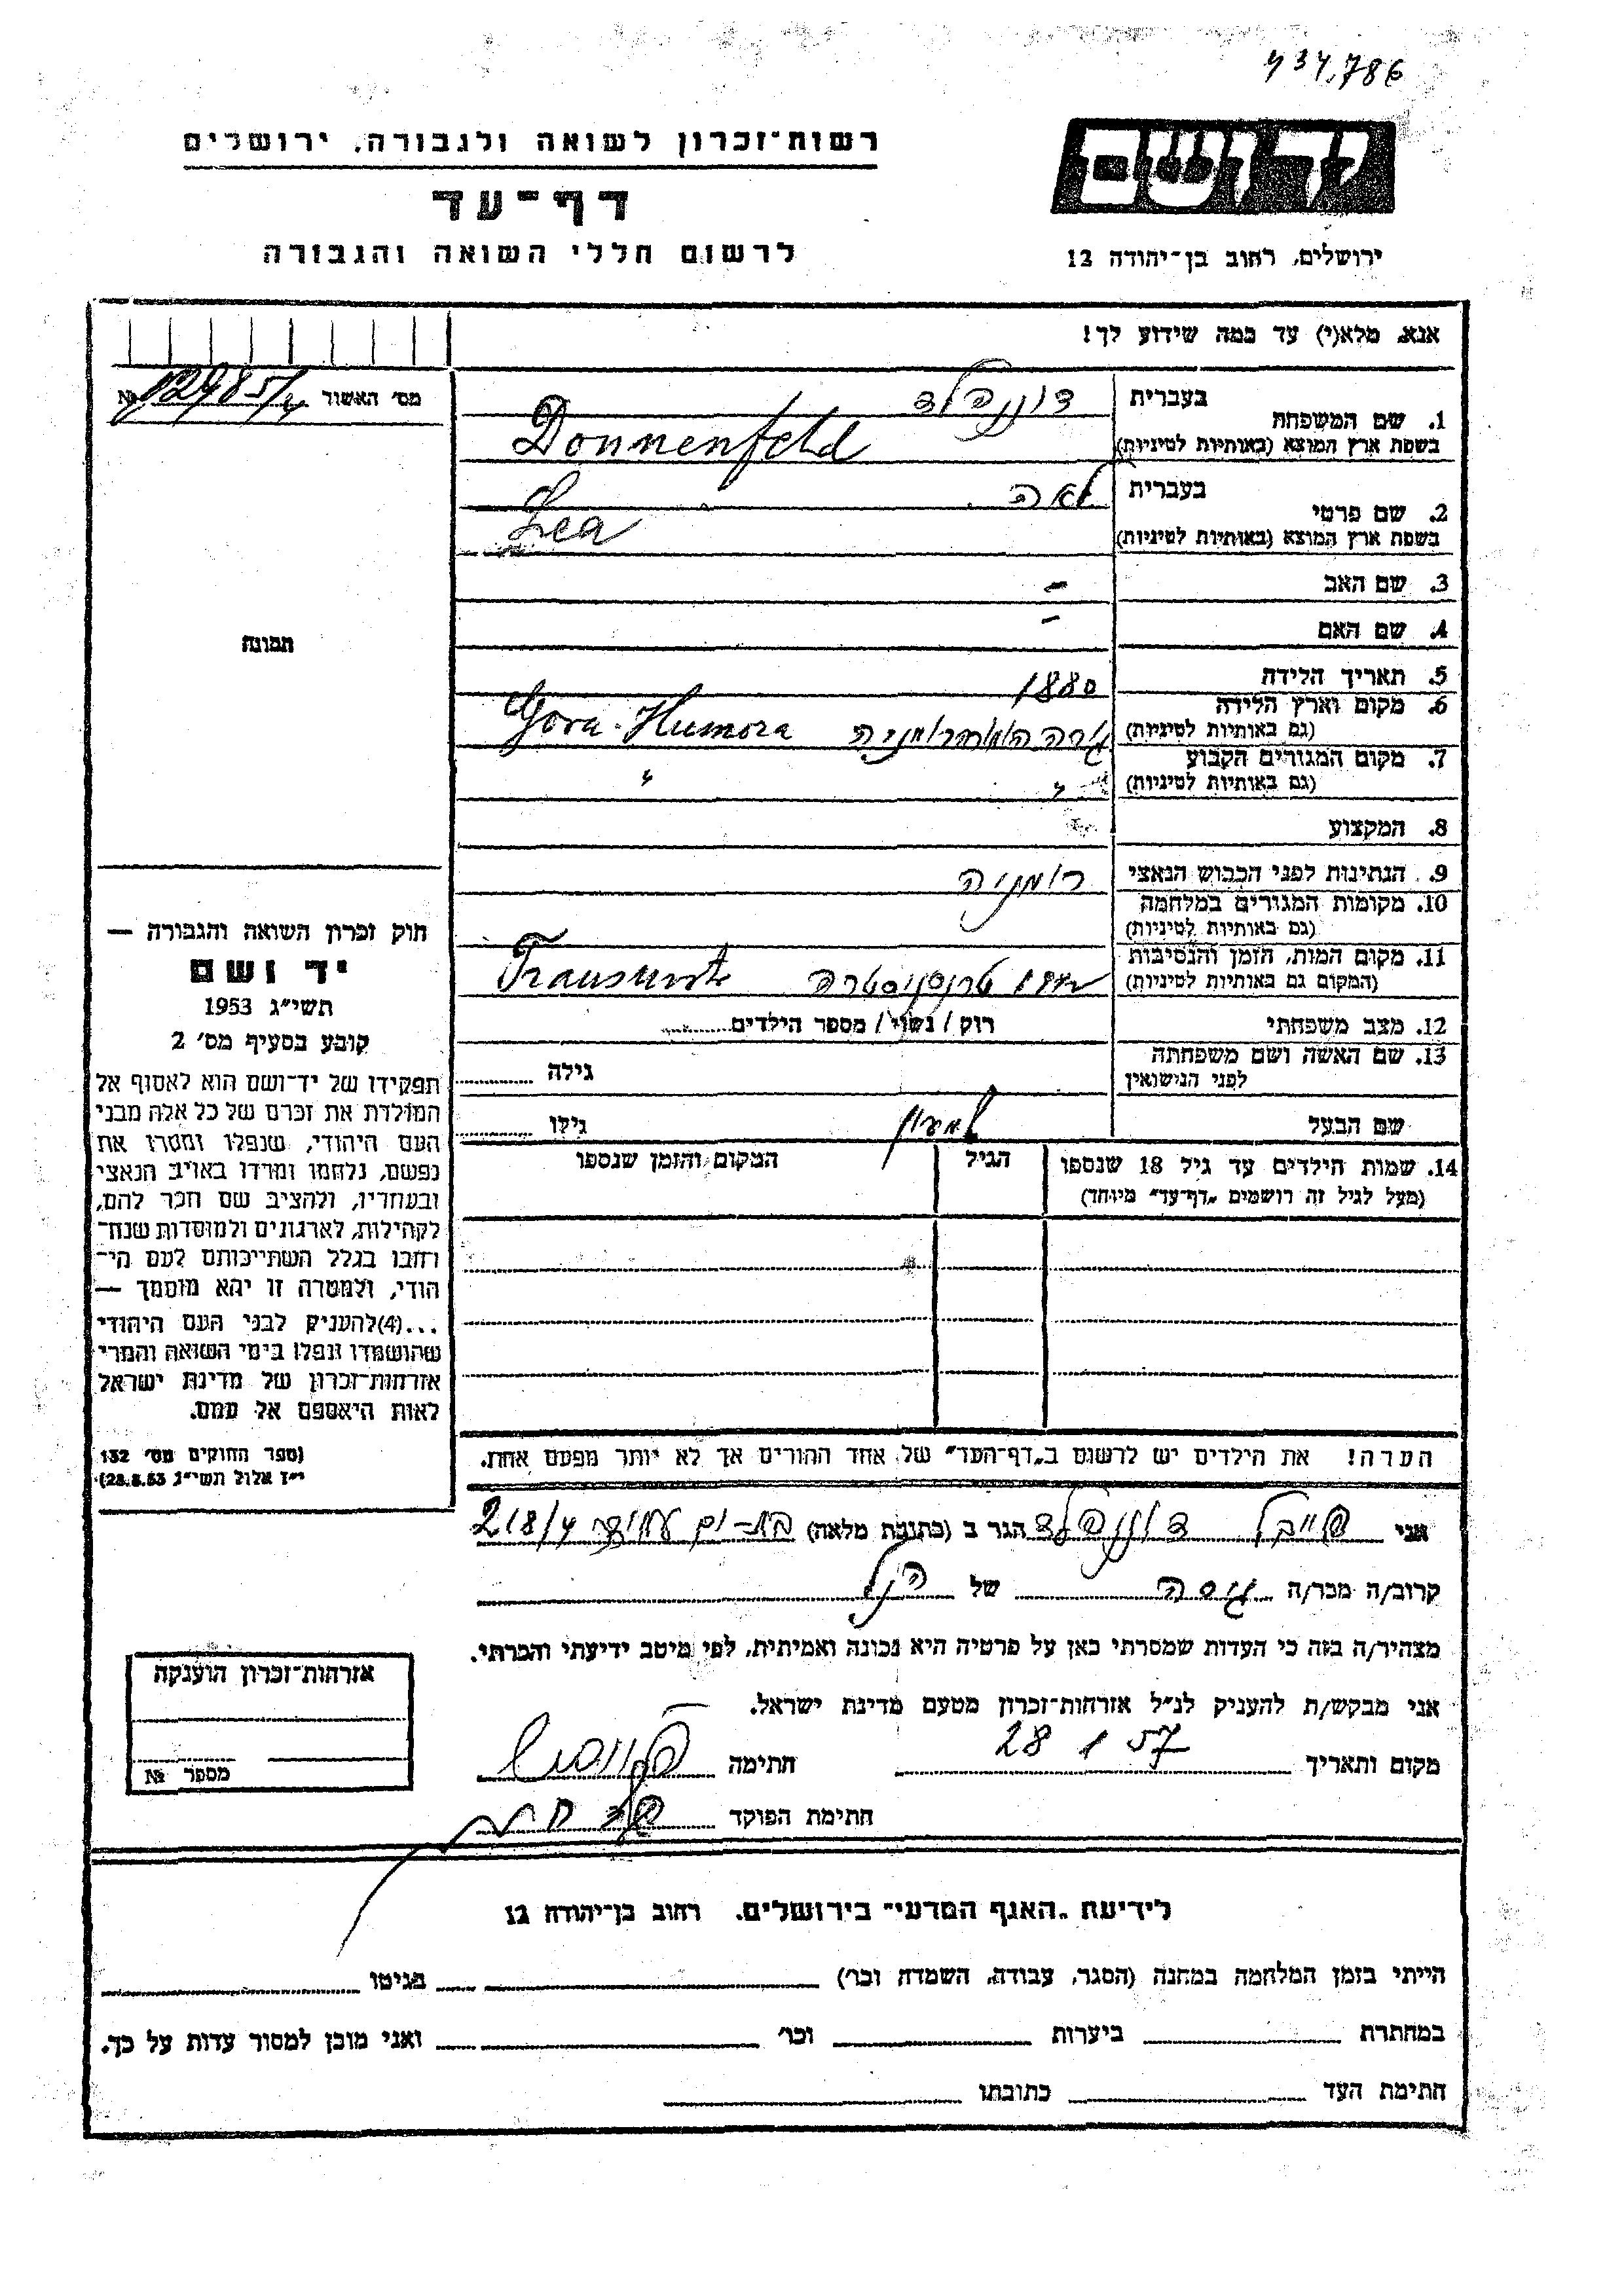 434,786
רשות־זכרון לשואה ולגבורה, ירושלים
ידושם
דף־עד
לרשום חללי השואה והגבורה
ירושלים, רחוב בן־יהודה 12
אנא, מלא(י) עד כמה שידוע לך!
מס' האשור №
1. שם המשפחה
בעברית דוננפלד
בשפת ארץ המוצא (באותיות לטיניות) Donnenfeld
2. שם פרטי
בעברית לאה
בשפת ארץ המוצא (באותיות לטיניות) Lea
3. שם האב -
4. שם האם -
5. תאריך הלידה 1880
6. מקום וארץ הלידה
(גם באותיות לטיניות) Gora-Humora
7. מקום המגורים הקבוע
(גם באותיות לטיניות) " "
8. המקצוע
9. הנתינות לפני הכבוש הנאצי רומניה
10. מקומות המגורים במלחמה
(גם באותיות לטיניות)
11. מקום המות, הזמן והנסיבות
(המקום גם באותיות לטיניות)
12. מצב משפחתי רוק / נשוי / מספר הילדים
13. שם האשה ושם משפחתה
לפני הנישואין גילה
שם הבעל שמעון גילו
14. שמות הילדים עד גיל 18 שנספו הגיל המקום והזמן שנספו
(מעל לגיל זה רושמים „דף־עד" מיוחד)
הערה! את הילדים יש לרשום ב„דף־העד" של אחד ההורים אך לא יותר מפעם אחת.
תמונה
חוק זכרון השואה והגבורה —
יד ושם
תשי"ג 1953
קובע בסעיף מס' 2
תפקידו של יד־ושם הוא לאסוף אל
המולדת את זכרם של כל אלה מבני
העם היהודי, שנפלו ומסרו את
נפשם, נלחמו ומרדו באויב הנאצי
ובעוזריו, ולהציב שם וזכר להם,
לקהילות, לארגונים ולמוסדות שנח־
רחבו בגלל השתייכותם לעם הי־
הודי, ולמטרה זו יהא מוסמך —
...(4)להעניק לבני העם היהודי
שהושמדו ונפלו בימי השואה והמרי
אזרחות־זכרון של מדינת ישראל
לאות היאספם אל עמם.
(ספר החוקים מס' 132
י"ז אלול תשי"ג 28.8.53)
אני פייבל דוננפלד הגר ב (כתובת מלאה) בת-ים עמידר 218/4
קרוב/ה מכר/ה גיסה של הנ"ל
מצהיר/ה בזה כי העדות שמסרתי כאן על פרטיה היא נכונה ואמיתית, לפי מיטב ידיעתי והכרתי.
אני מבקש/ת להעניק לנ"ל אזרחות־זכרון מטעם מדינת ישראל.
מקום ותאריך 28 1 57 חתימה
חתימת הפוקד
אזרחות־זכרון הוענקה
מספר №
לידיעת „האגף המדעי" בירושלים, רחוב בן־יהודה 12
הייתי בזמן המלחמה במחנה (הסגר, עבודה, השמדה וכו') בגיטו
במחתרת ביערות וכו' ואני מוכן למסור עדות על כך.
חתימת העד כתובתו